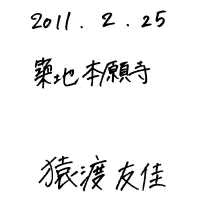 2011.2.25
築地本願寺
猿渡友佳